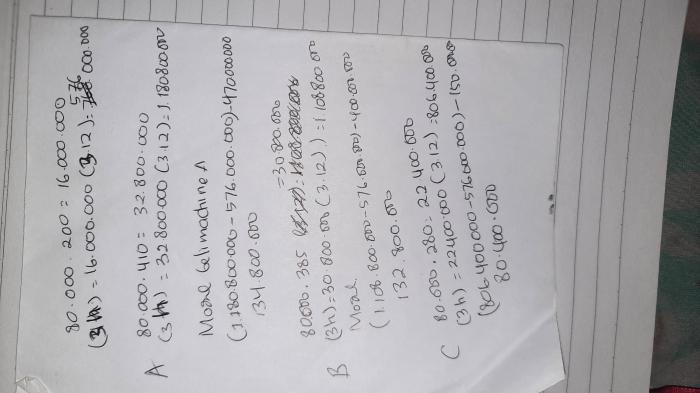 80.000.200 = 16.000.000
(3 th) = 16.000.000 (3.12) = 576.000.000
80.000.410 = 32.800.000
A (3 th) = 32800.000 (3.12) = 1.180800.000
Modal belimachine A
(1.180.800.000 - 576.000.000) - 470000.000
134.800.000
80.000.385 = 30.800.000
B (3h) = 30.800.000 (3.12)) = 1.108800.000
Modal
(1.108.800.000 - 576.000.000) - 400.000.000
132.800.000
80.000.280 = 22400.000
C (3h) = 22400.000 (3.12) = 806400.000
(806400000 - 576000.000) - 150.000
80.400.000